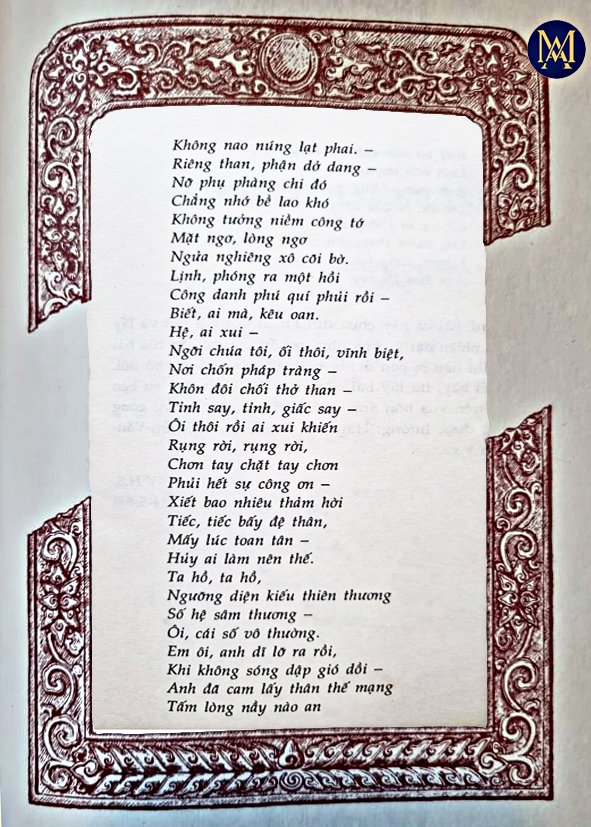 MA
Không nao núng lạt phai. –
Riêng than, phận dở dang –
Nỡ phụ phàng chi đó
Chẳng nhớ bề lao khó
Không tưởng niềm công tớ
Mặt ngơ, lòng ngơ
Ngửa nghiêng xô côi bờ.
Lịnh, phóng ra một hồi
Công danh phú quí phủi rồi –
Biết, ai mà, kêu oan.
Hệ, ai xui –
Ngỡi chúa tôi, ối thôi, vĩnh biệt,
Nơi chốn pháp tràng –
Khôn đôi chối thở than –
Tỉnh say, tỉnh, giấc say –
Ôi thôi rồi ai xui khiến
Rụng rời, rụng rời,
Chơn tay chặt tay chơn
Phủi hết sự công ơn –
Xiết bao nhiêu thảm hời
Tiếc, tiếc bấy đệ thân,
Mấy lúc toan tân –
Hủy ai làm nên thế.
Ta hồ, ta hồ,
Ngưỡng diện kiếu thiên thương
Số hệ sâm thương –
Ôi, cái số vô thường.
Em ôi, anh dĩ lỡ ra rồi,
Khi không sóng dập gió dồi –
Anh đã cam lấy thân thế mạng
Tấm lòng nầy nào an